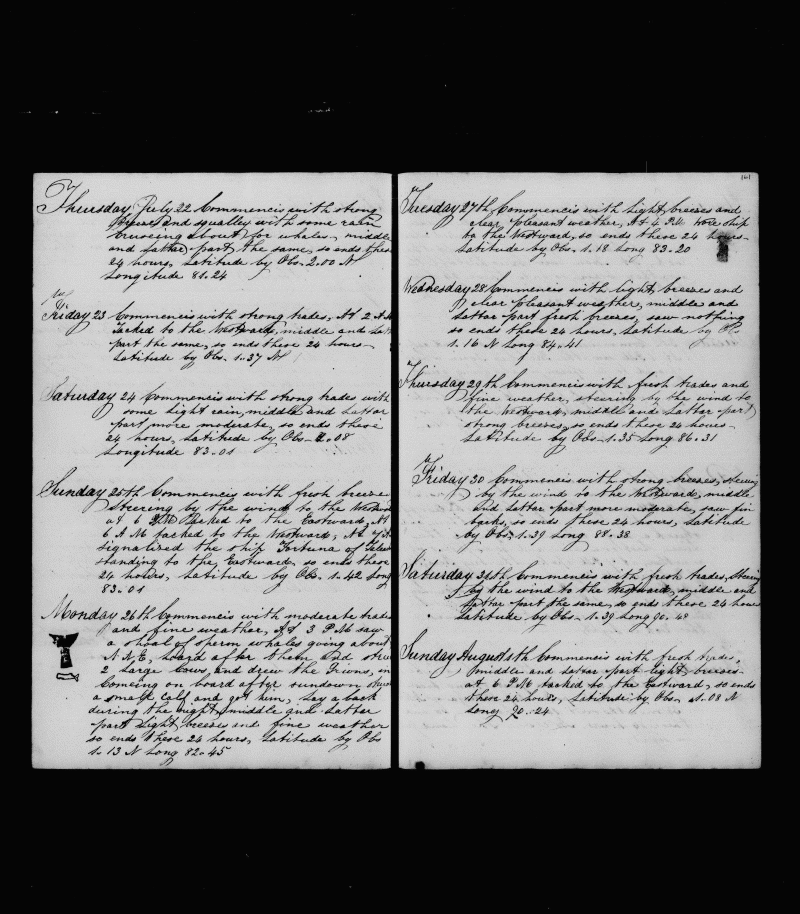 Thursday July 22 Commencis with strong
breezes and squalley with some rain
cruseing about for whales, middle
and latter part the same, so ends these
24 hours, Latitude by Obs- 2.00 N
Longitude 81.24
Friday 23 Commencis with strong trades, At 2 A.M
tacked to the Westward, middle and latt
part the same, so ends these 24 hours-
Latitude by Obs- 1.37 N
Saturday 24 Commencis with strong trades with
some light rain, middle and Lattar
part more moderate, so ends these
24 hours, Latitude by Obs- 2.08
Longitude 83.01
Sunday 25th Commencis with fresh breeze
Steering by the wind to the Westward
at 6 P.M tacked to the Eastward, At
6 A.M tacked to the Westward, At
signalized the ship Fortuna of
standing to the Eastward, so ends these
24 hours, Latitude by Obs. 1.42 Long
83.01
Monday 26th Commencis with moderate trades
and fine weather, At 3 P.M saw
a shoal of sperm whales going about
N.N.E, loard after them and struc
2 Large Cows, and drew the Irons, on
Comeing on board after sundown struc
a small Calf and got him, Lay aback
during the night, middle and Lattar
part Light breezes and fine weather
so ends these 24 hours, Latitude by Obs
1.13 N Long 82.45
161
Tuesday 27th Commencis with Light breezes and
clear pleasant weather, At 4 P.M Wore ship
to the Westward, so ends these 24 hours-
Latitude by Obs- 1.18 Long 83.20
Wednesday 28 Commencis with light breezes and
clear pleasant weather, middle and
Lattar part fresh breezes, saw nothing
so ends these 24 hours, Latitude by Obs
1.16 N Long 84.41
Thursday 29th Commencis with fresh trades and
fine weather, steering by the wind to
the Westward, middle and Lattar part
strong breezes, so ends these 24 hours-
Latitude by Obs- 1.35 Long 86.31
Friday 30 Commencis with strong breezes, steering
by the wind to the Westward, middle
and Lattar part more moderate, saw fin
backs, so ends these 24 hours, Latitude
by Obs- 1.39 Long 88.38
Saturday 31th Commencis with fresh trades, Steering
by the wind to the Westward, middle and
Lattar part the same, so ends these 24 hours
Latitude by Obs- 1.39 Long 90.48
Sunday August 1th Commencis with fresh trades,
middle and Lattar part light breezes
at 6 P.M tacked to the Eastward, so ends
these 24 hours, Latitude by Obs- 1.08 N
Long 90.24